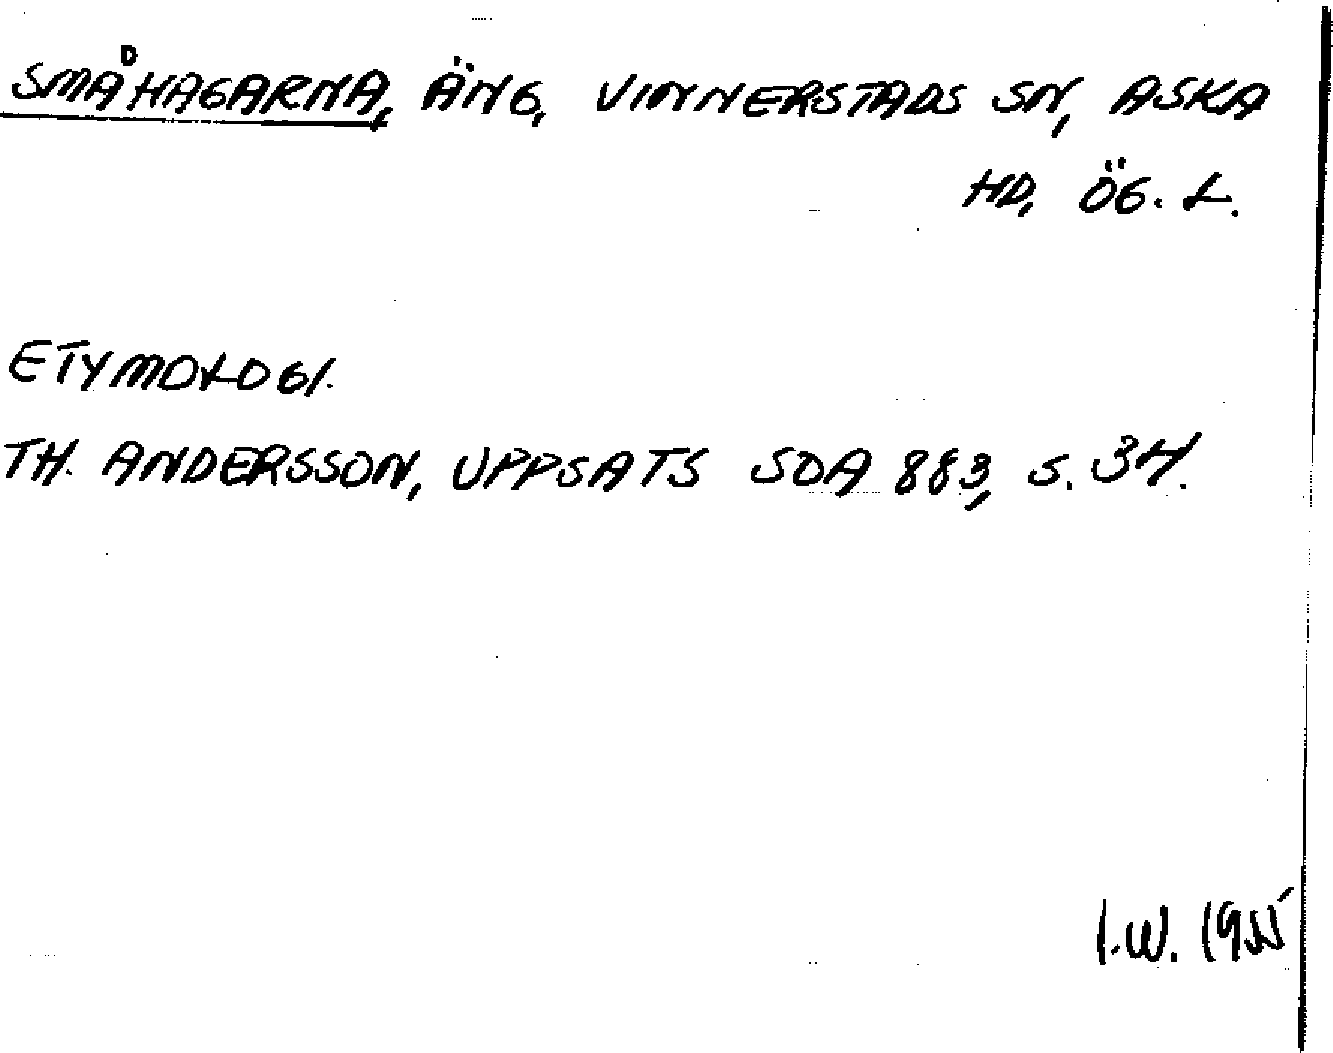 SMÅHAGARNA, ÄNG, VINNERSTADS SN, ASKA
HD, ÖG. L.
ETYMOLOGI.
TH. ANDERSSON, UPPSATS SOA 883, S. 34.
I.W. 1955